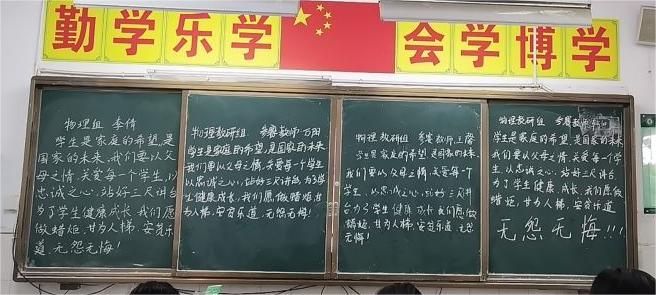 勤学乐学
会学博学
物理组 李倩
学生是家庭的希望,是
国家的未来,我们要以父
母之情,关爱每一个学生,以
忠诚之心,站好三尺讲台,
为了学生健康成长,我们愿
做蜡炬,甘为人梯,安贫乐
道,无怨无悔!
物理教研组 参赛教师:万阳
学生是家庭的希望,是国家的未来
我们要以父母之情,关爱每个学生
以忠诚之心,站好三尺讲台,为了学
生健康成长,我们愿做蜡炬,甘
为人梯,安贫乐道,无怨无悔!
物理教研组 参赛教师:王馨
学生是家庭的希望,是国家的未来
我们要以父母之情,关爱每一个
学生,以忠诚之心,站好三尺讲
台为了学生健康成长,我们愿做
蜡炬,甘为人梯,安贫乐道,无怨
无悔!
物理教研组 参赛教师
学生是家庭的希望,是国家的未
来,我们要以父母之情,关爱每一个学
生,以忠诚之心,站好三尺讲台,
为了学生健康成长,我们愿做
蜡炬,甘为人梯,安贫乐道,
无怨无悔!!!